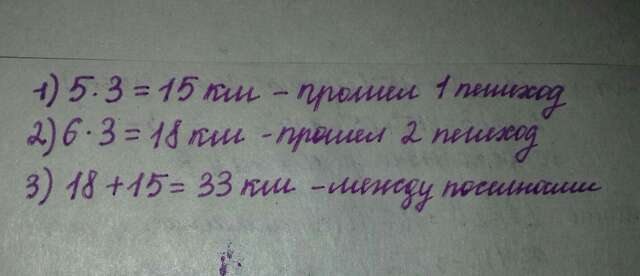 1) 5·3 = 15 км – прошел 1 пешеход
2) 6·3 = 18 км - прошел 2 пешеход
3) 18+15 = 33 км – между поселками